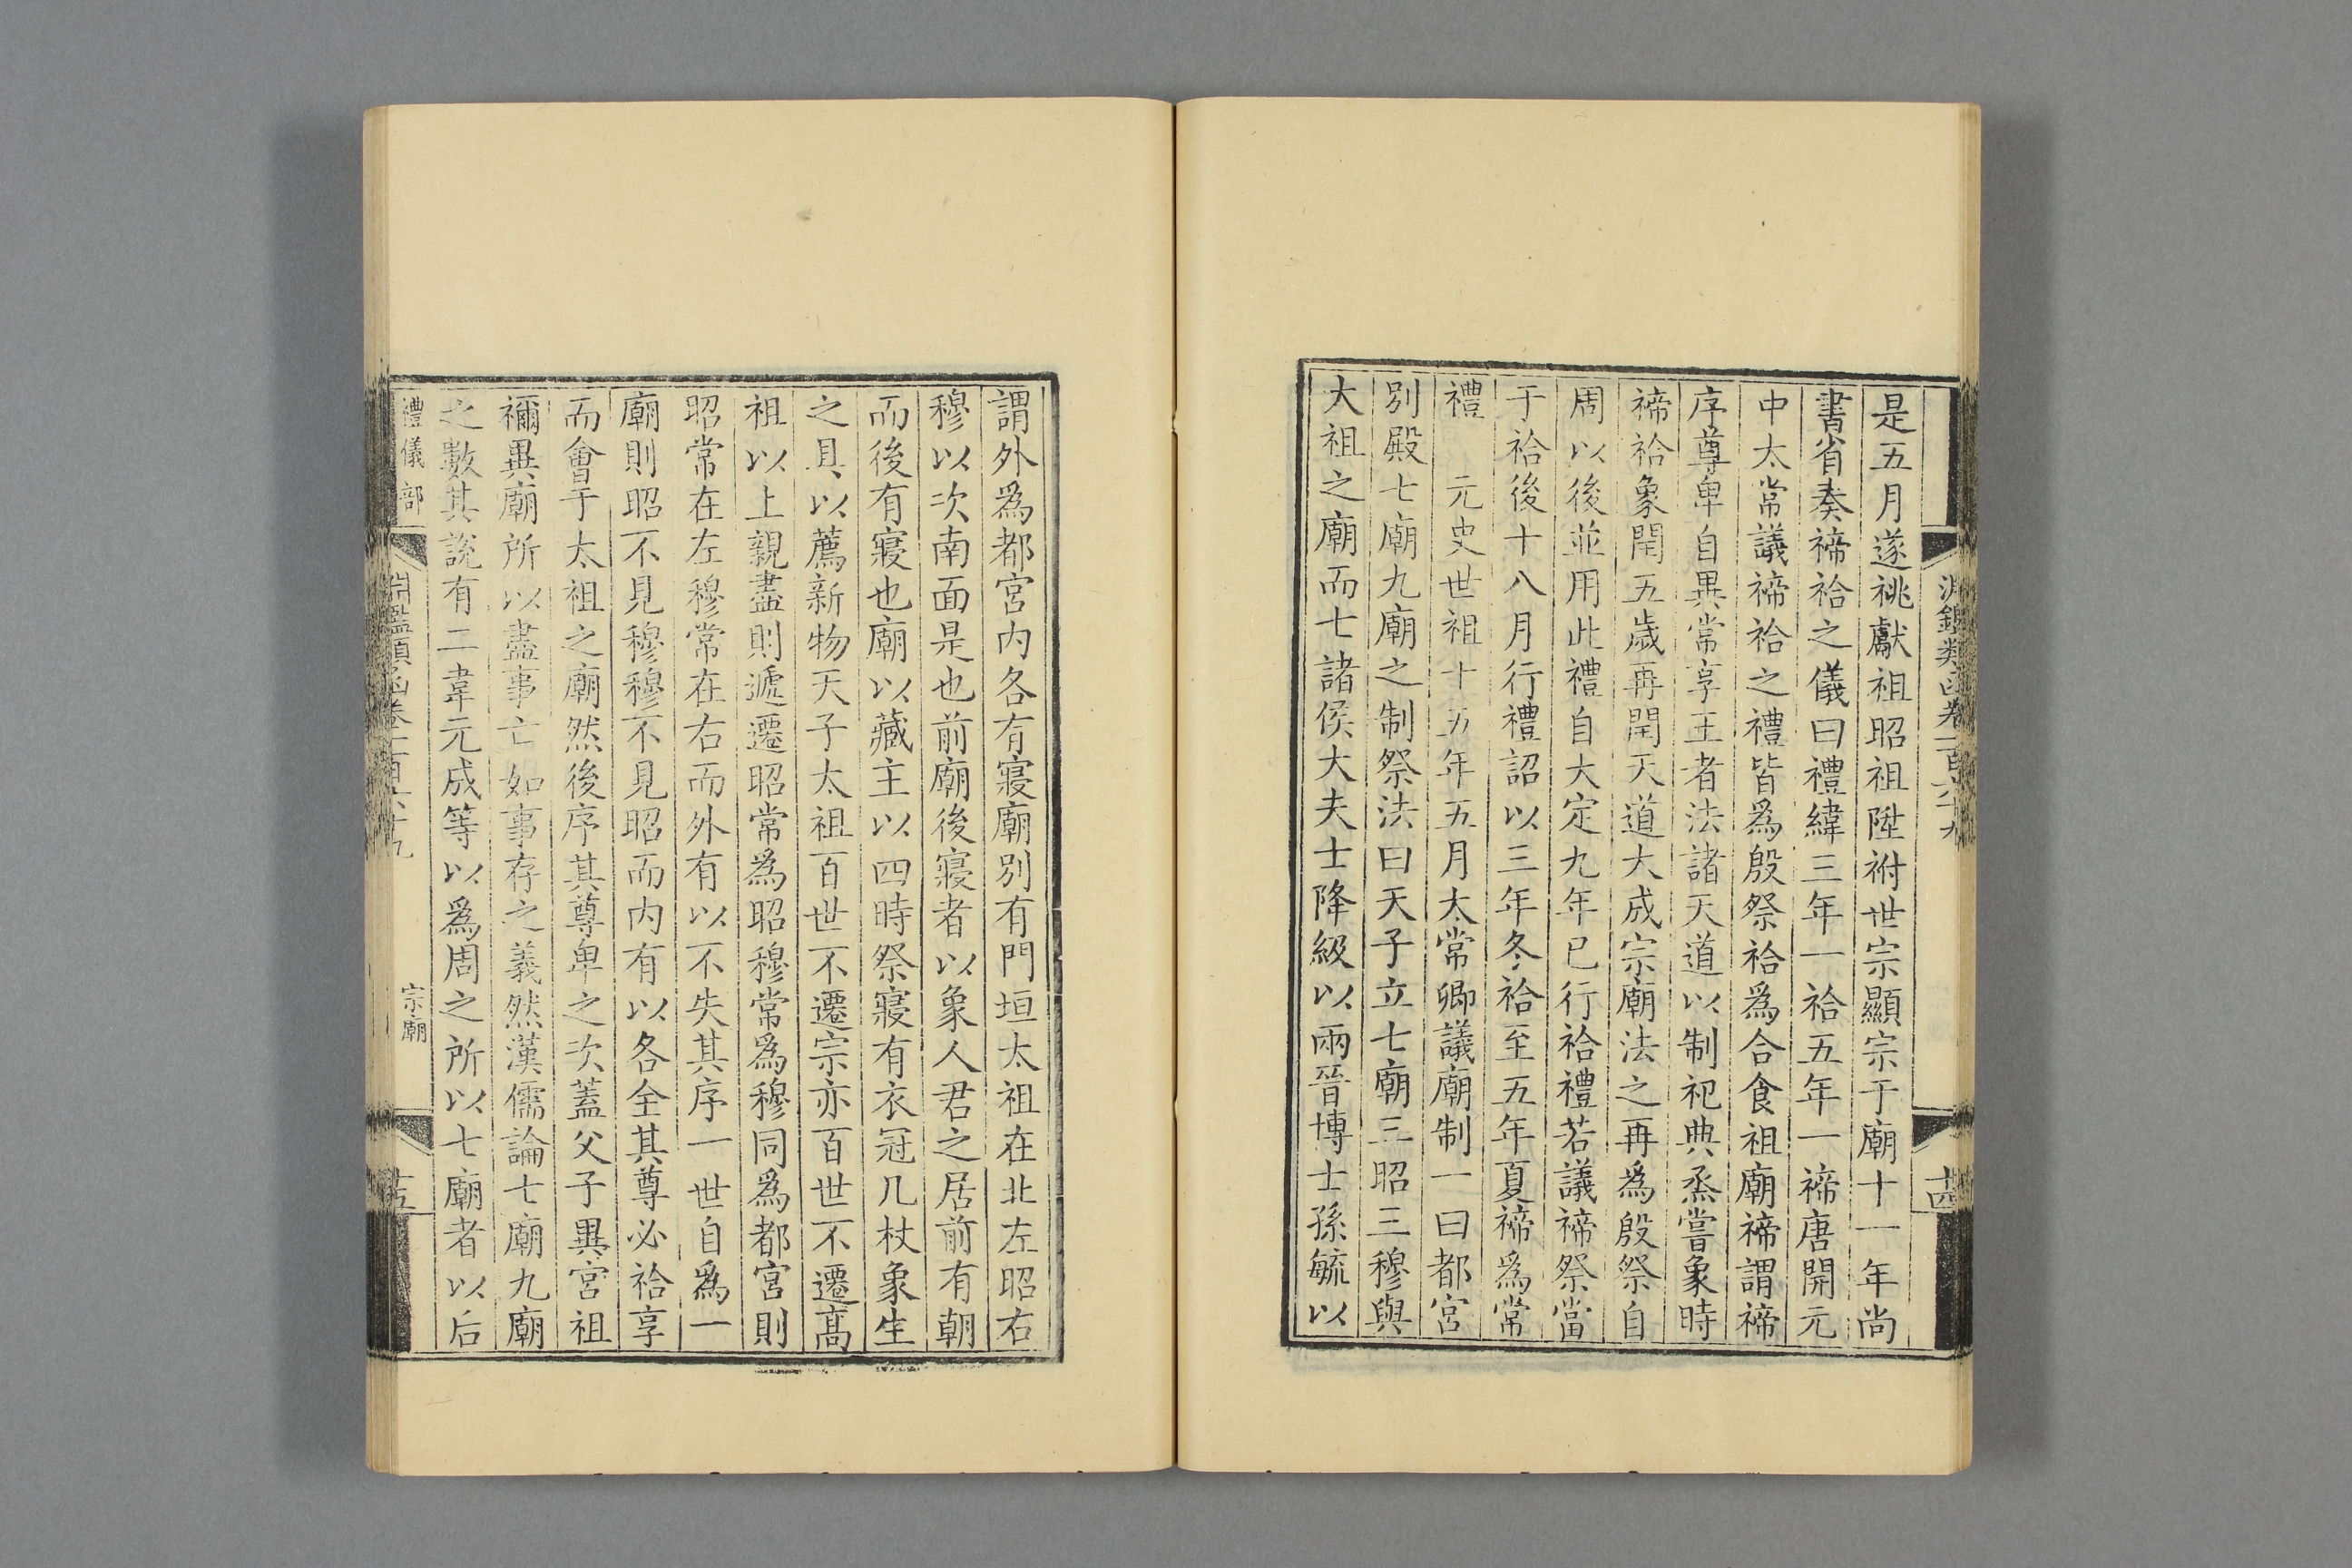 淵鑑類函卷一百六十九
十四
是五月遂祧獻祖昭祖陞祔世宗顯宗于廟十一年尚
書省奏禘祫之儀曰禮緯三年一祫五年一禘唐開元
中太常議禘祫之禮皆爲殷祭祫爲合食祖廟禘謂禘
序尊卑自異常享王者法諸天道以制祀典烝嘗象時
禘祫象閏五歲再閏天道大成宗廟法之再爲殷祭自
周以後並用此禮自大定九年已行祫禮若議禘祭當
于祫後十八月行禮詔以三年冬祫至五年夏禘爲常
禮　元史世祖十五年五月太常卿議廟制一曰都宮
別殿七廟九廟之制祭法曰天子立七廟三昭三穆與
大祖之廟而七諸侯大夫士降級以兩晉博士孫毓以
謂外爲都宮内各有寢廟別有門垣太祖在北左昭右
穆以次南面是也前廟後寢者以象人君之居前有朝
而後有寢也廟以藏主以四時祭寢有衣冠几杖象生
之具以薦新物天子太祖百世不遷宗亦百世不遷高
祖以上親盡則遞遷昭常爲昭穆常爲穆同爲都宮則
昭常在左穆常在右而外有以不失其序一世自爲一
廟則昭不見穆穆不見昭而内有以各全其尊必祫享
而會于太祖之廟然後序其尊卑之次蓋父子異宮祖
禰異廟所以盡事亡如事存之義然漢儒論七廟九廟
之數其說有二韋元成等以爲周之所以七廟者以后
禮儀部
淵鑑類函卷一百六十九
宗廟
十五